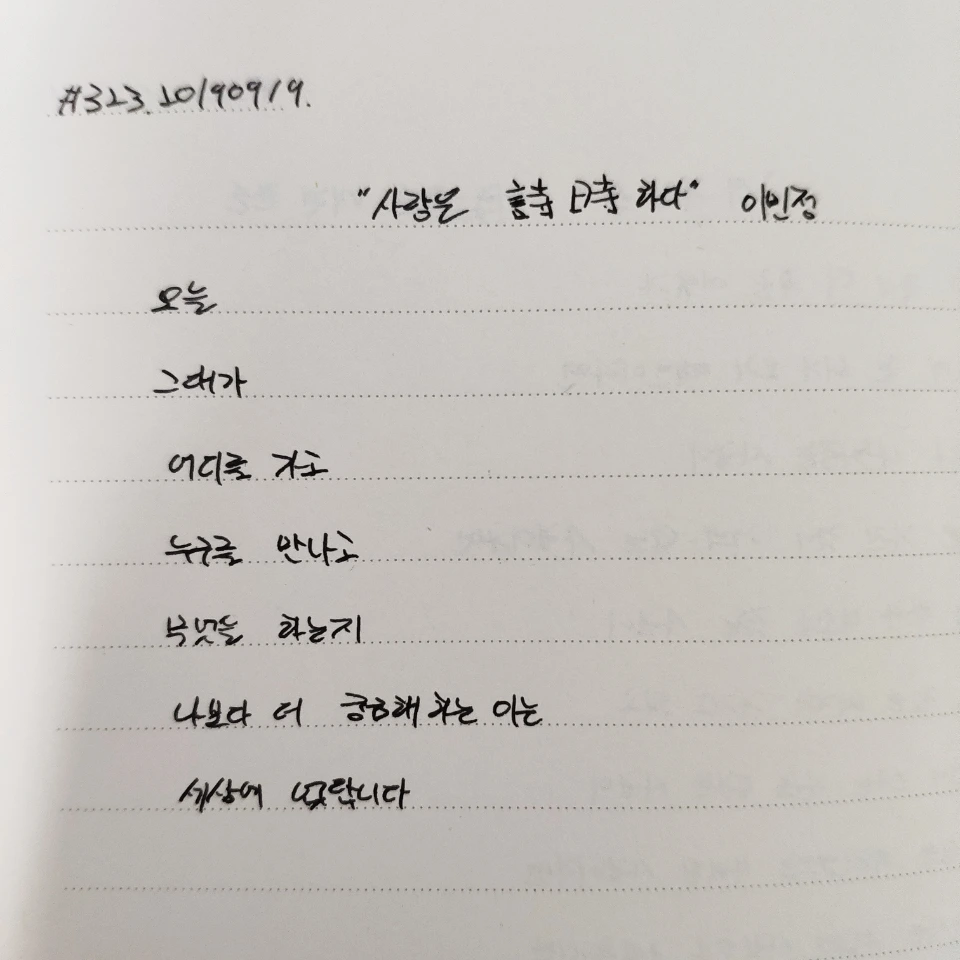 #323. 20190919.
"사랑은 詩時하다" 이인정
오늘
그대가
어디를 가고
누구를 만나고
무엇을 하는지
나보다 더 궁금해 하는 이는
세상에 없답니다